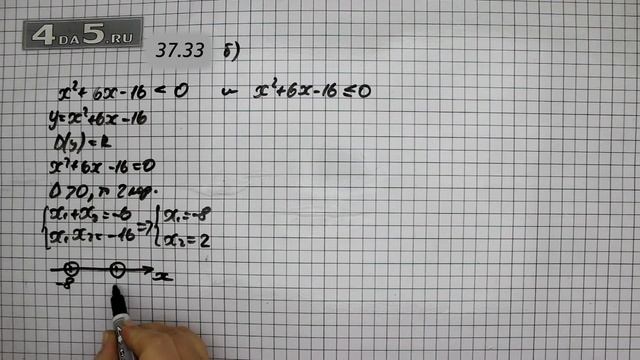 4DA5.RU
37.33 б)
x²+6x-16<0 и x²+6x-16≤0
y=x²+6x-16
D(y)=R
x²+6x-16=0
D>0, то 2 кор.
x₁+x₂=-6 => x₁=-8
x₁x₂=-16 x₂=2
-8 x